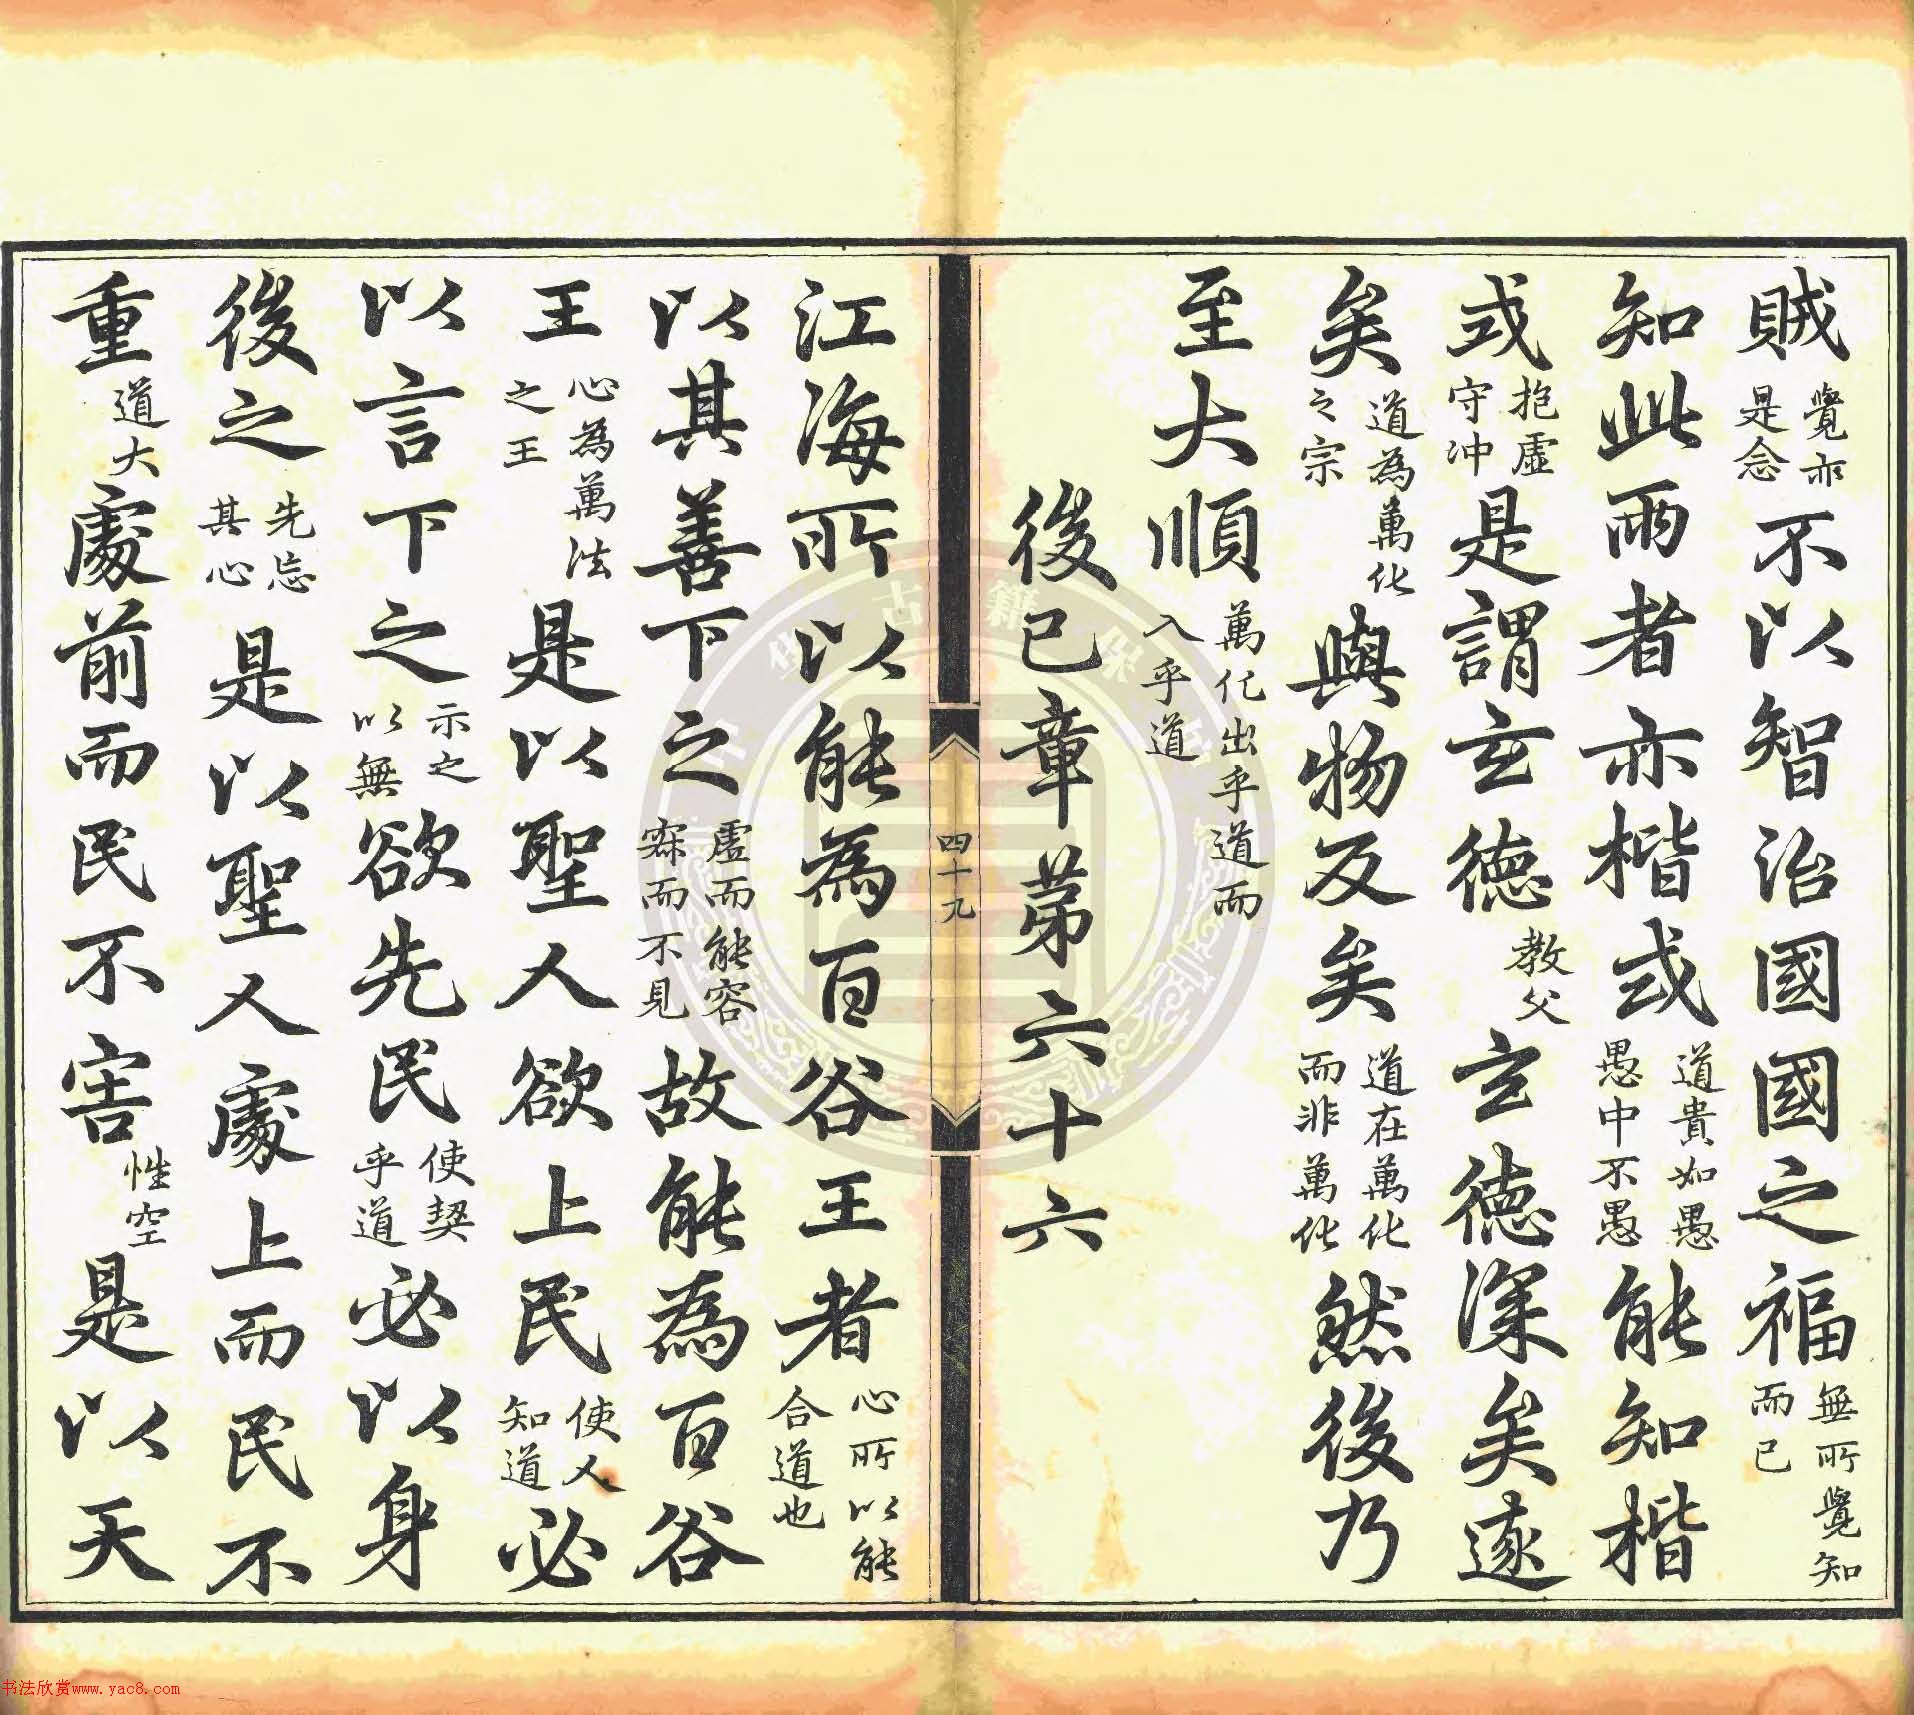 賊覺亦是念不以智治國國之福無所覺知而已
知此兩者亦楷式道貴如愚愚中不愚能知楷
式抱虛守冲是謂玄德教父玄德深矣遠
矣道為萬化之宗與物反矣道在萬化而非萬化然後乃
至大順萬化出乎道而入乎道
後已章第六十六
四十九
江海所以能為百谷王者心所以能合道也
以其善下之虛而能容寂而不見故能為百谷
王心為萬法之王是以聖人欲上民使人知道必
以言下之示之以無欲先民使契乎道必以身
後之先忘其心是以聖人處上而民不
重道大處前而民不害性空是以天
书法欣赏www.yac8.com